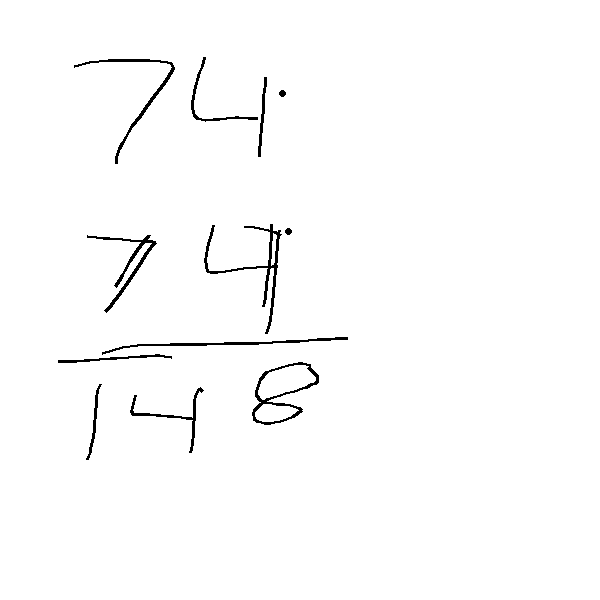 74.
74.
148